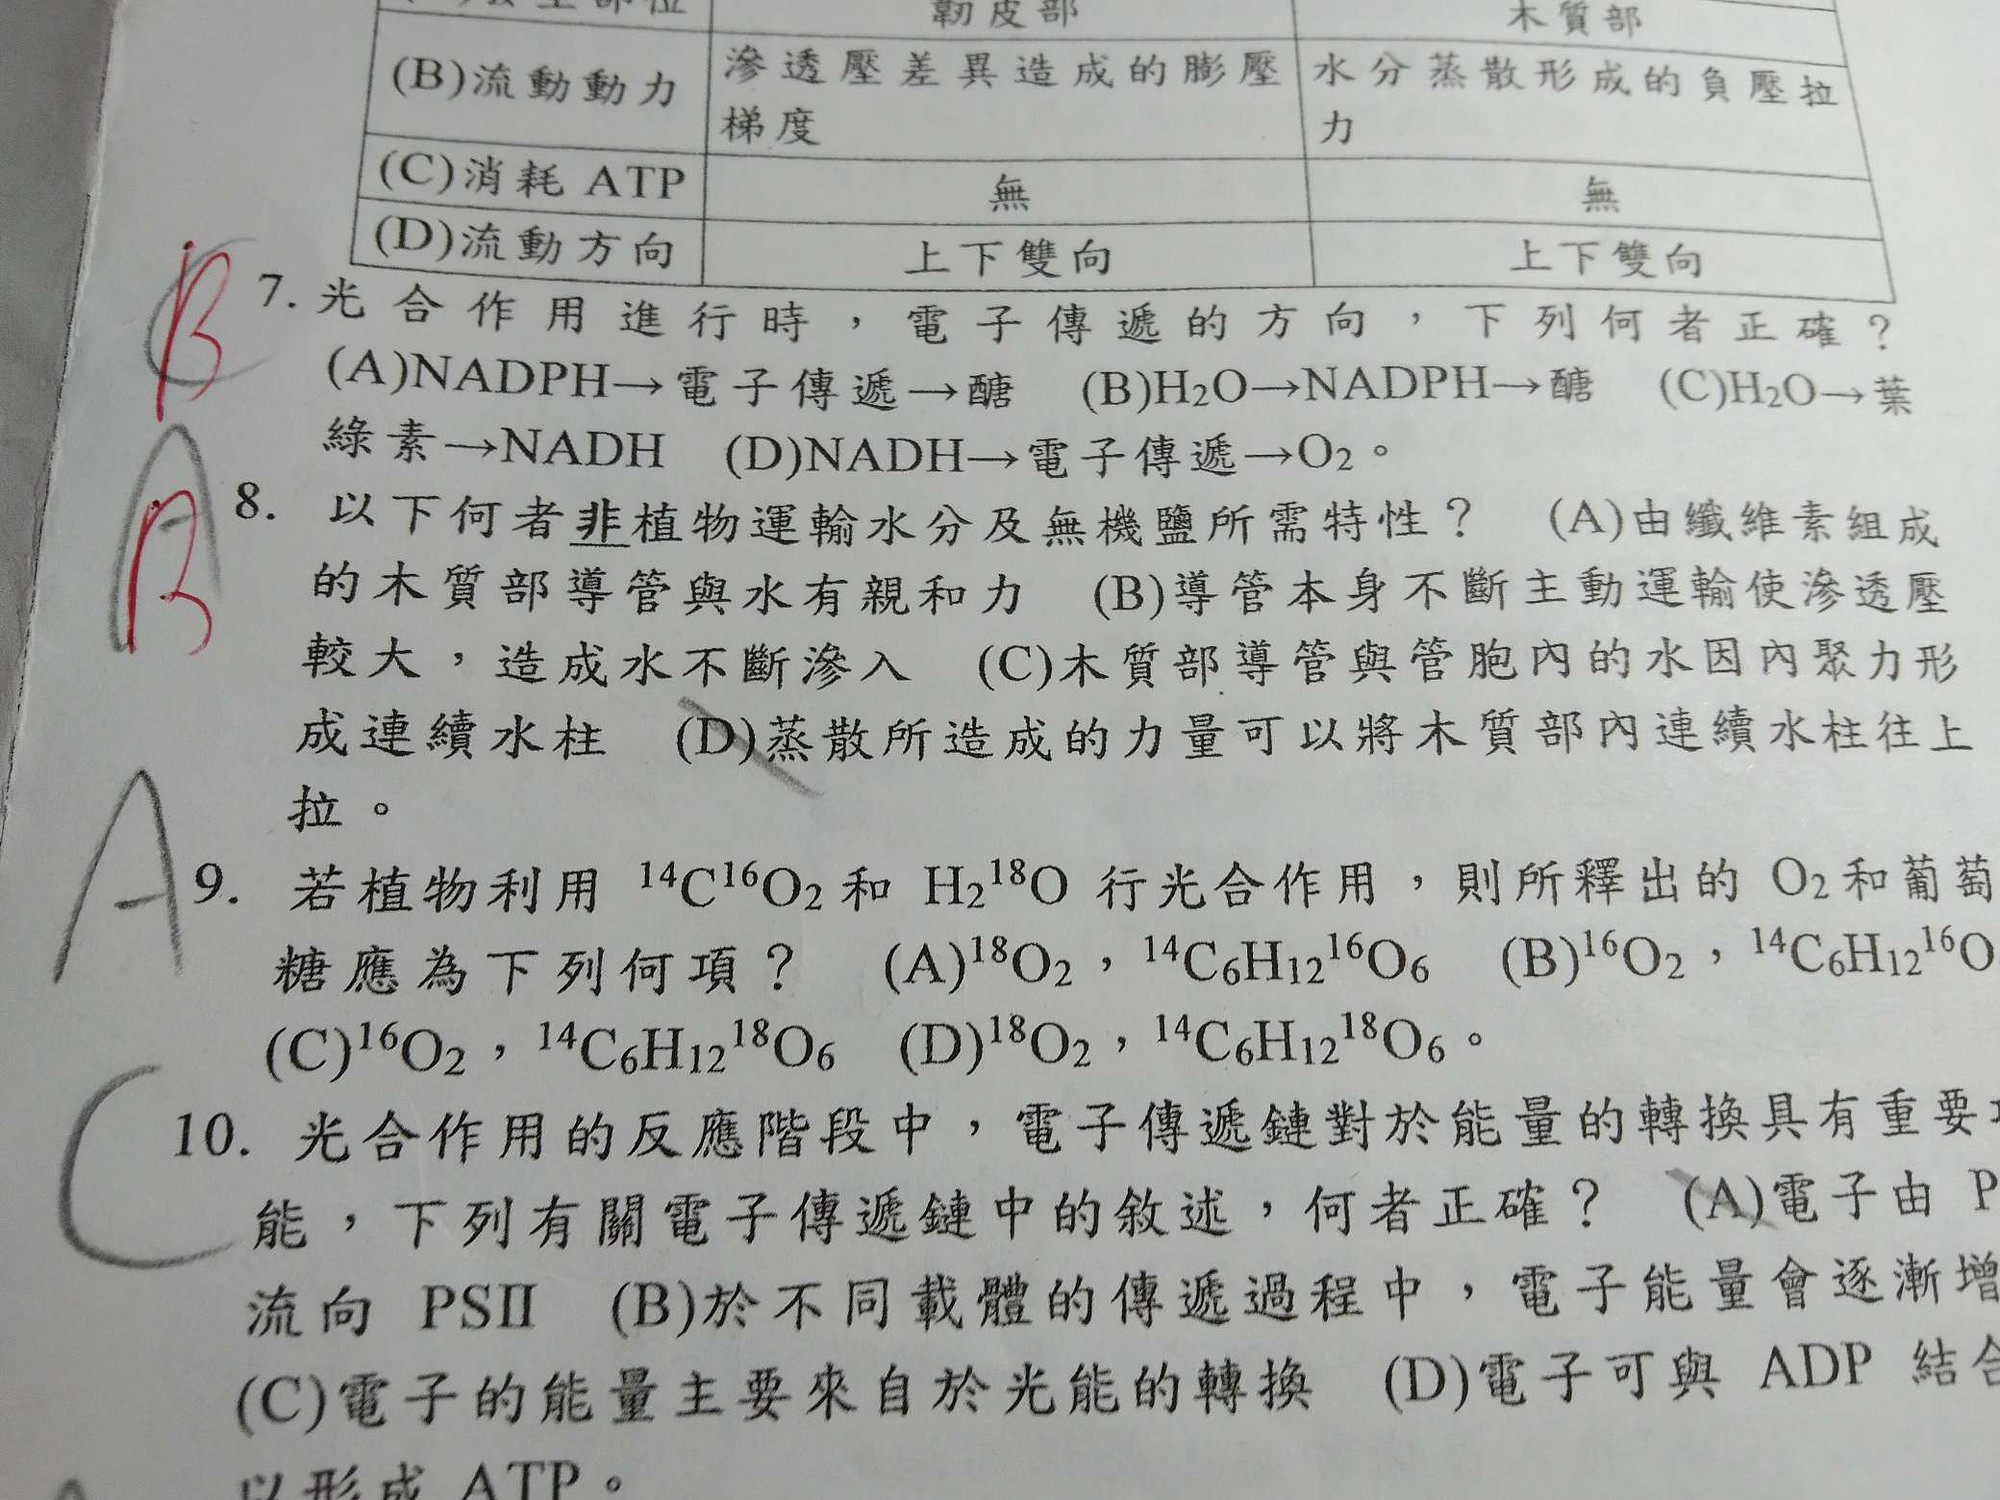 韌皮部 木質部
(B)流動動力 滲透壓差異造成的膨壓 水分蒸散形成的負壓拉
梯度 力
(C)消耗 ATP 無 無
(D)流動方向 上下雙向 上下雙向
B C 7. 光合作用進行時，電子傳遞的方向，下列何者正確？
(A)NADPH→電子傳遞→醣 (B)H2O→NADPH→醣 (C)H2O→葉
綠素→NADH (D)NADH→電子傳遞→O2。
A B 8. 以下何者非植物運輸水分及無機鹽所需特性？ (A)由纖維素組成
的木質部導管與水有親和力 (B)導管本身不斷主動運輸使滲透壓
較大，造成水不斷滲入 (C)木質部導管與管胞內的水因內聚力形
成連續水柱 (D)蒸散所造成的力量可以將木質部內連續水柱往上
拉。
A 9. 若植物利用 ¹⁴C¹⁶O2 和 H2¹⁸O 行光合作用，則所釋出的 O2 和葡萄
糖應為下列何項？ (A)¹⁸O2，¹⁴C6H12¹⁶O6 (B)¹⁶O2，¹⁴C6H12¹⁶O
(C)¹⁶O2，¹⁴C6H12¹⁸O6 (D)¹⁸O2，¹⁴C6H12¹⁸O6。
C 10. 光合作用的反應階段中，電子傳遞鏈對於能量的轉換具有重要
能，下列有關電子傳遞鏈中的敘述，何者正確？ (A)電子由 P
流向 PSII (B)於不同載體的傳遞過程中，電子能量會逐漸增
(C)電子的能量主要來自於光能的轉換 (D)電子可與 ADP 結合
以形成 ATP。